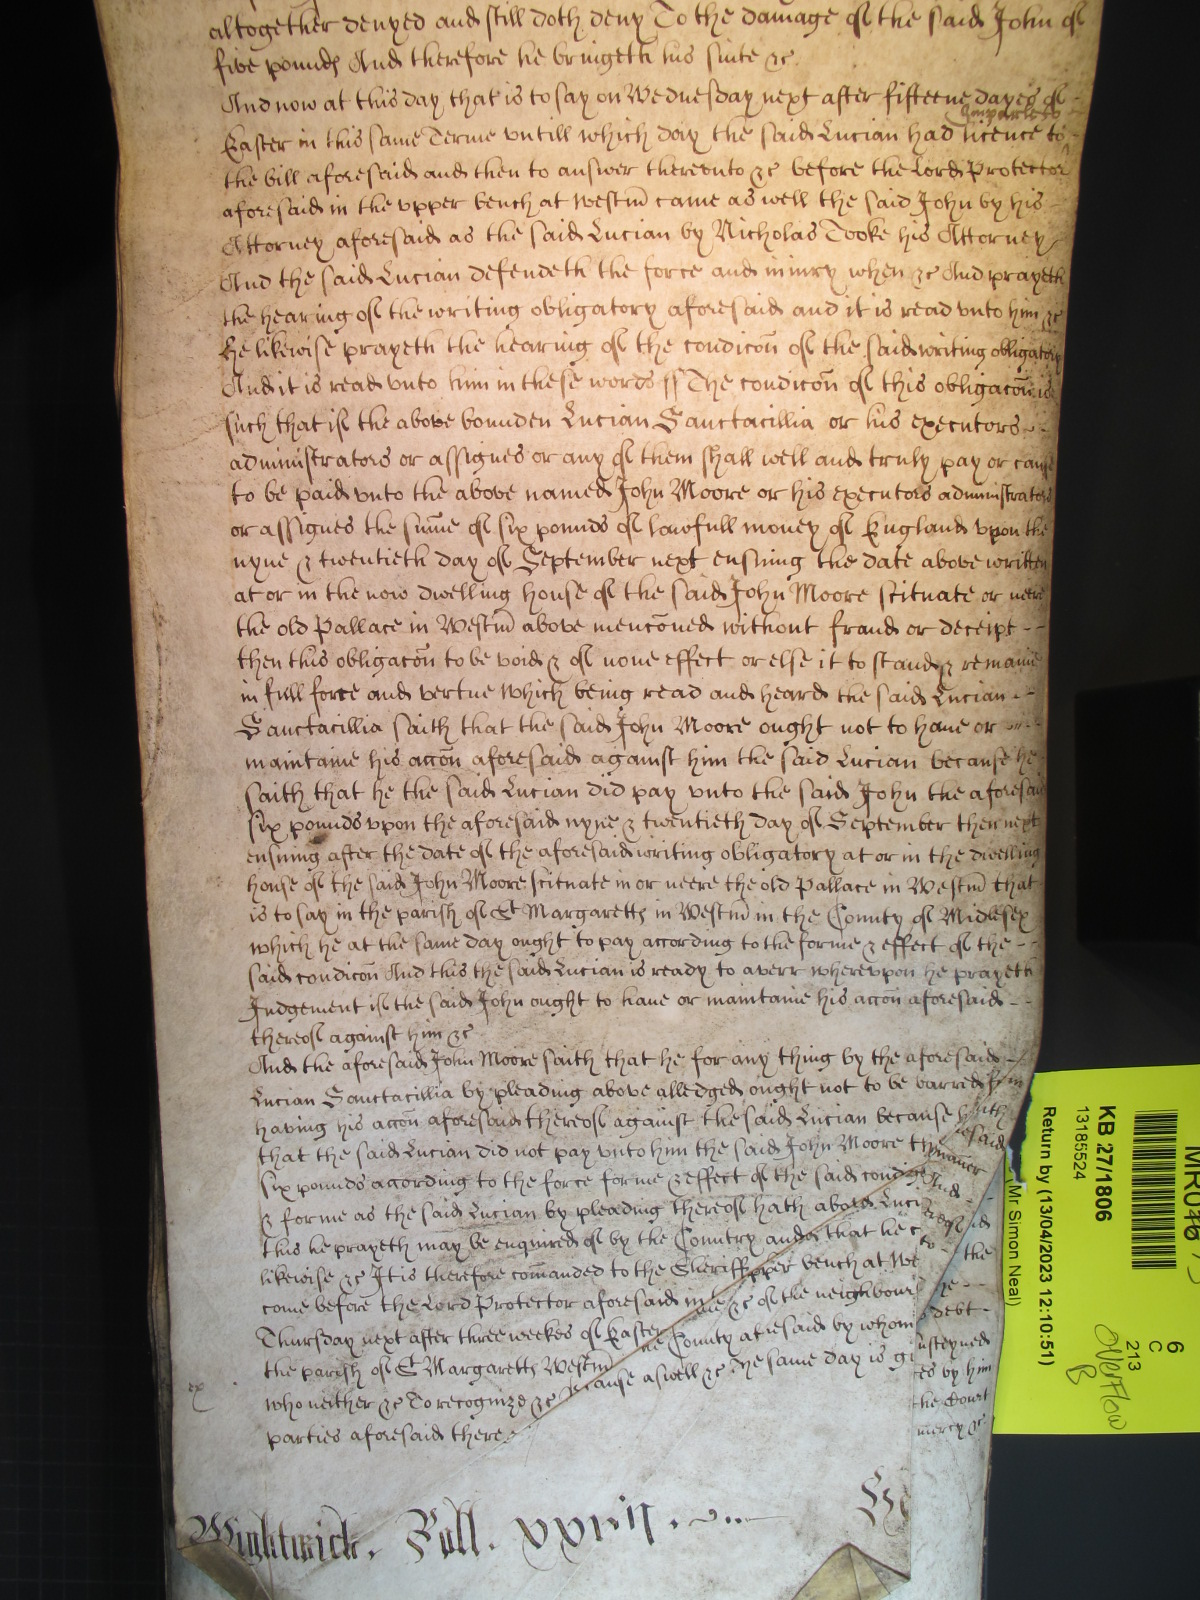 altogether denyed and still doth deny To the damage of the said John of
five pounds And therefore he bringeth his suite &c.
And now at this day that is to say on Wednesday next after fifteene dayes of
imparle to
Easter in this same Terme untill which day the said Lucian had licence to
the bill aforesaid and then to answer thereunto &c before the Lord Protector
aforesaid in the upper bench at Westm̄ came as well the said John by his
Attorney aforesaid as the said Lucian by Nicholas Tooke his Attorney
And the said Lucian defendeth the force and iniury when &c And prayeth
the hearing of the writing obligatory aforesaid and it is read unto him &c
he likewise prayeth the hearing of the condicōn of the said writing obligatory
And it is read unto him in these words ss The condicōn of this obligacōn is
such that if the above bounden Lucian Sanctacillia or his executors
administrators or assignes or any of them shall well and truly pay or cause
to be paid unto the above named John Moore or his executors administrators
or assignes the sum̄e of six pounds of lawfull money of England upon the
nyne & twentieth day of September next ensuing the date above written
at or in the now dwelling house of the said John Moore scituate or neere
the old Pallace in Westm̄ above mencōned without fraud or deceipt
then this obligacōn to be void & of none effect or else it to stand & remaine
in full force and vertue which being read and heard the said Lucian
Sanctacillia saith that the said John Moore ought not to have or
maintaine his accōn aforesaid against him the said Lucian because he
saith that he the said Lucian did pay unto the said John the aforesaid
six pounds upon the aforesaid nyne & twentieth day of September then next
ensuing after the date of the aforesaid writing obligatory at or in the dwelling
house of the said John Moore scituate in or neere the old Pallace in Westm̄ that
is to say in the parish of St Margaretts in Westm̄ in the County of Midlesex
which he at the same day ought to pay according to the forme & effect of the
said condicōn And this the said Lucian is ready to averr whereupon he prayeth
Iudgement if the said John ought to have or maintaine his accōn aforesaid
thereof against him &c
And the aforesaid John Moore saith that he for any thing by the aforesaid
Lucian Sanctacillia by pleading above alledged ought not to be barred from
having his accōn aforesaid thereof against the said Lucian because saith
that the said Lucian did not pay unto him the said John Moore
six pounds according to the force forme & effect of the said manner
& forme as the said Lucian by pleading thereof hath above And
this he prayeth may be enquired of by the Country and that he
likewise &c It is therefore com̄anded to the Sheriff the
come before the Lord Protector aforesaid in upper bench at We
Thursday next after three weekes of Easter &c of the neighbour debt
the parish of St Margaretts Westm̄ County aforesaid by whom
who neither &c To recognize &c because aswell &c The same day is by him
parties aforesaid there the Court
mercy &c.
ex
Wightwick. Roll. xxviij.
KB 27/1806
13185524
Return by (13/04/2023 12:10:51)
(Mr Simon Neal)
6
C
213
Overflow
8